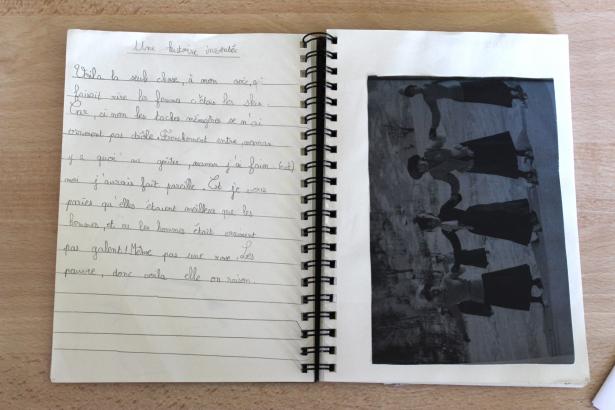 Une histoire inventée
Voila la seul chose, à mon avis, qi
faisait rire la femme c'étais les skis.
Car, si non les taches ménagères ce n'ai
vraiment pas drôle. Franchement entre, maman
y a quoi au goûter, maman j'ai faim
moi j'aurais fait pareille. Et je vous
paries qu'elles étaient meilleurs que les
hommes, et vu les hommes était vraiment
pas galent! Même pas une rose. Les
pauvre, donc voila elle on raison.